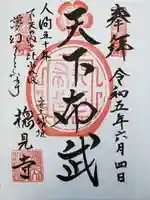 奉拝
令和五年六月四日
天下布武
人間五十年
下天の内をくらぶれば
夢幻の如くなり
摠見寺